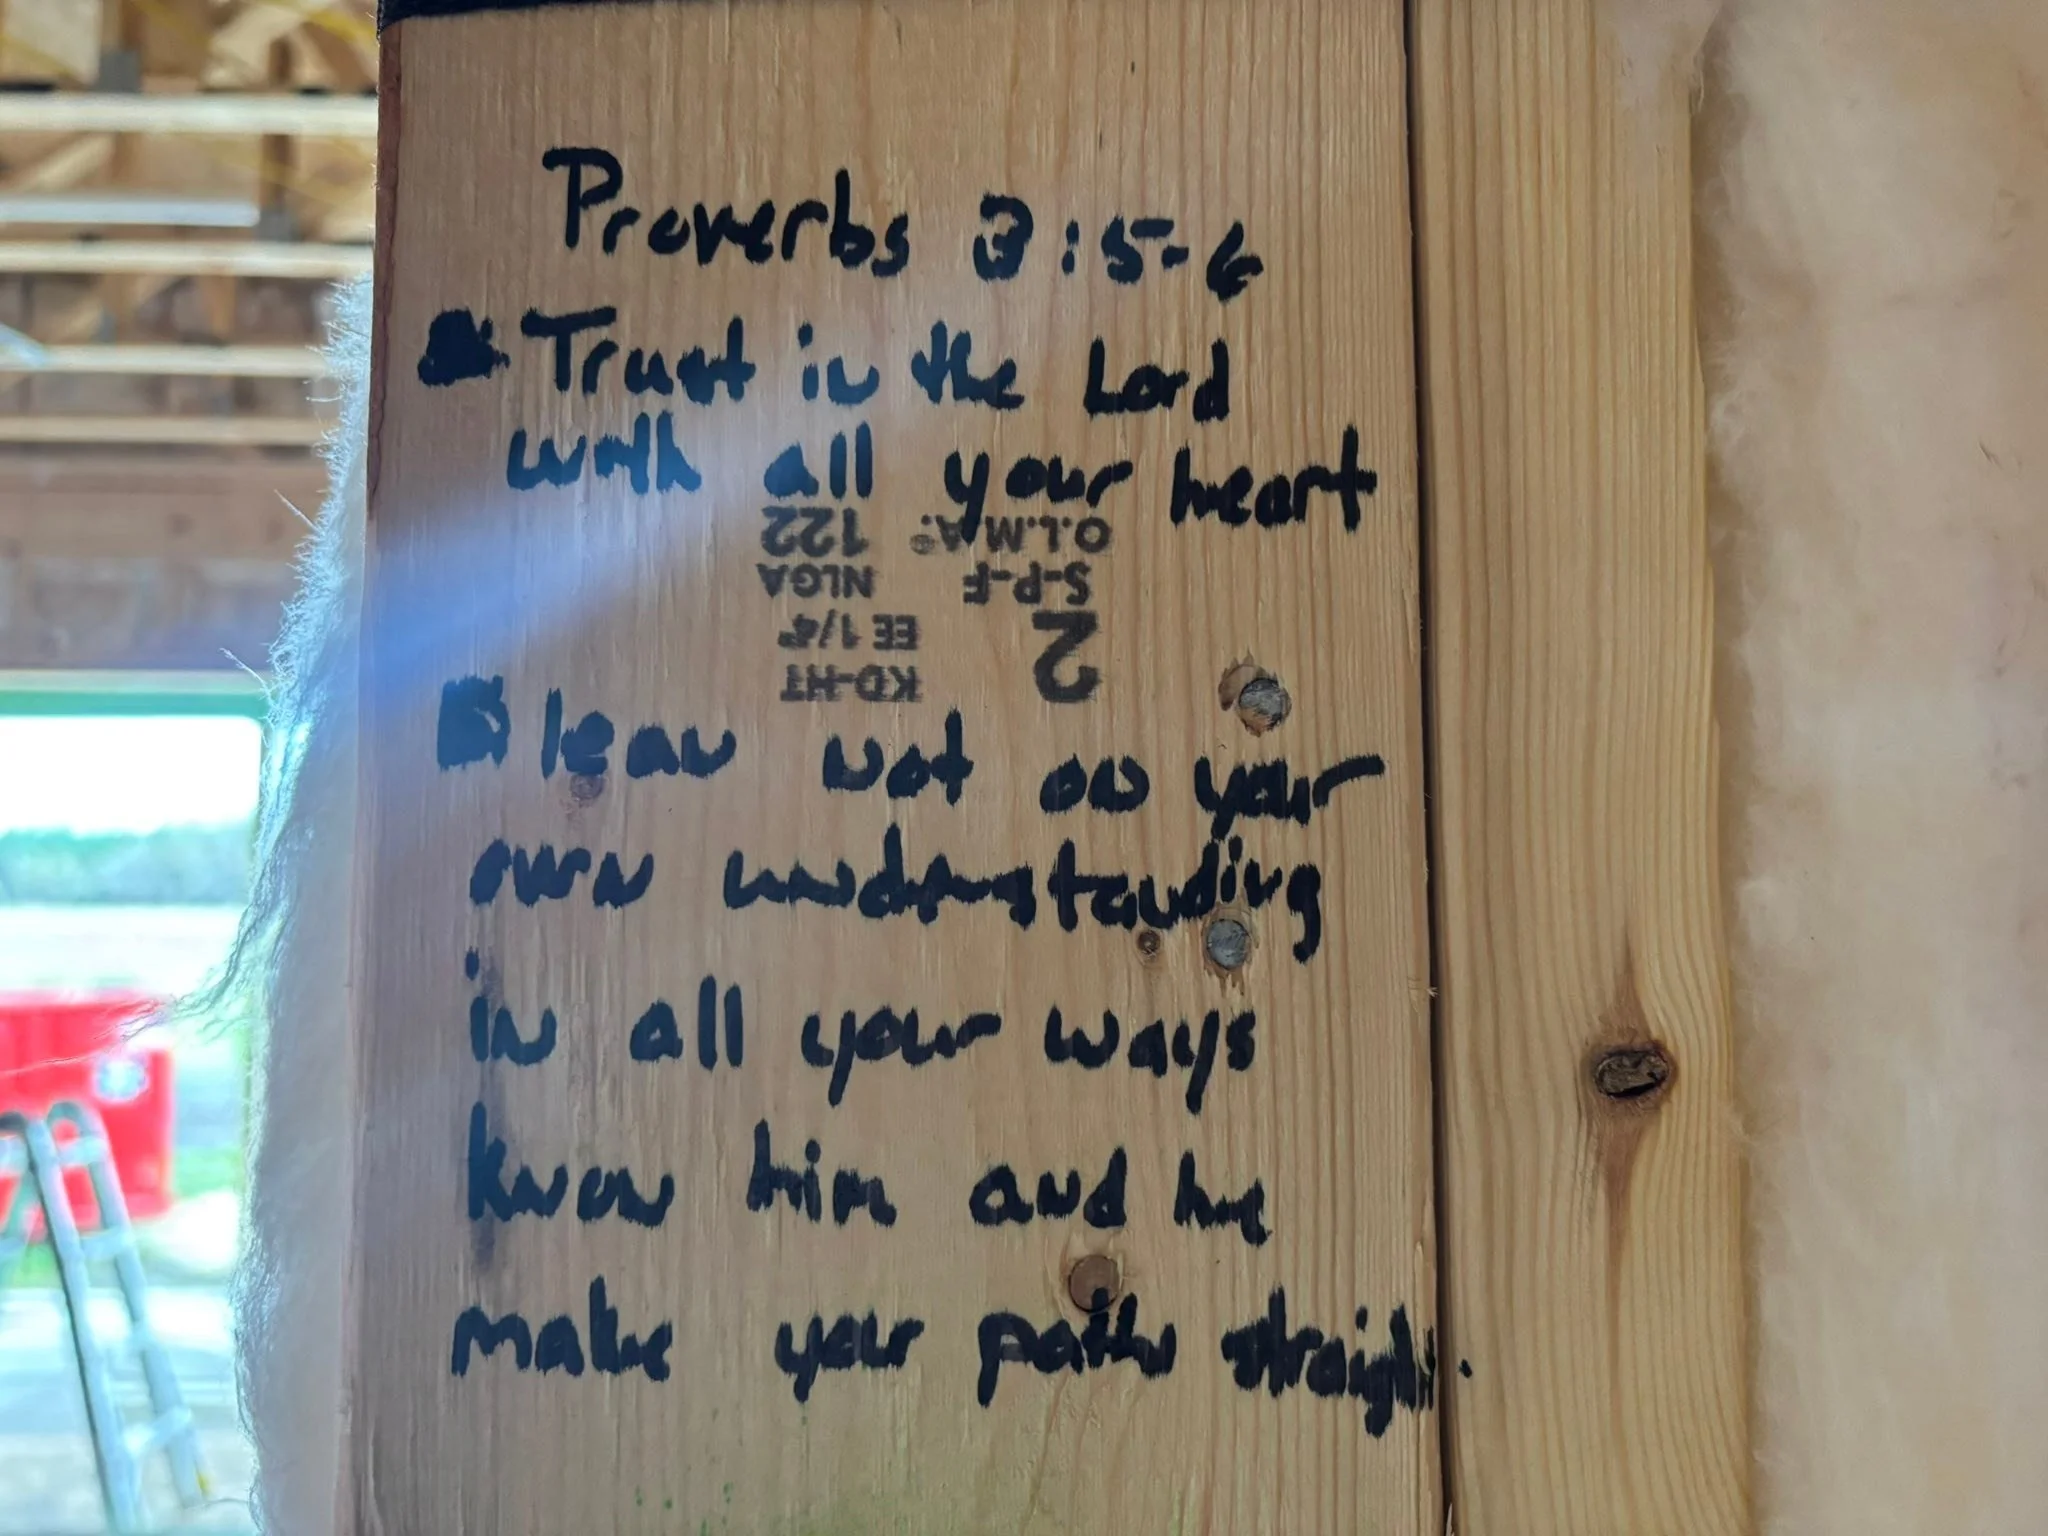 Proverbs 3:5-6
Trust in the Lord
with all your heart
122 O.L.M.A.®
NLGA S-P-F
EE 1/4" 2
KD-HT
lean not on your
own understanding
in all your ways
know him and he
make your paths straight.